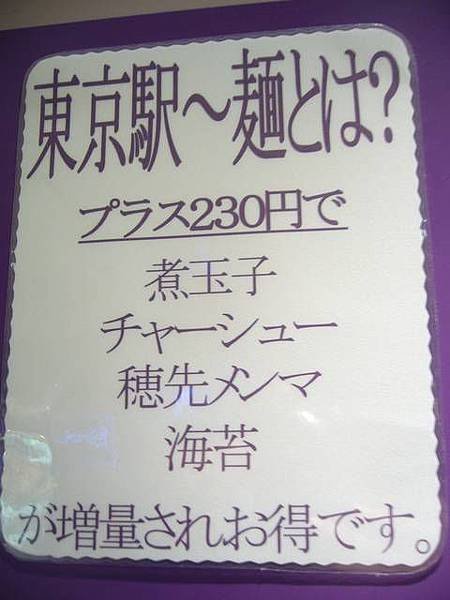 東京駅～麺とは?
プラス230円で
煮玉子
チャーシュー
穂先メンマ
海苔
が増量されお得です。